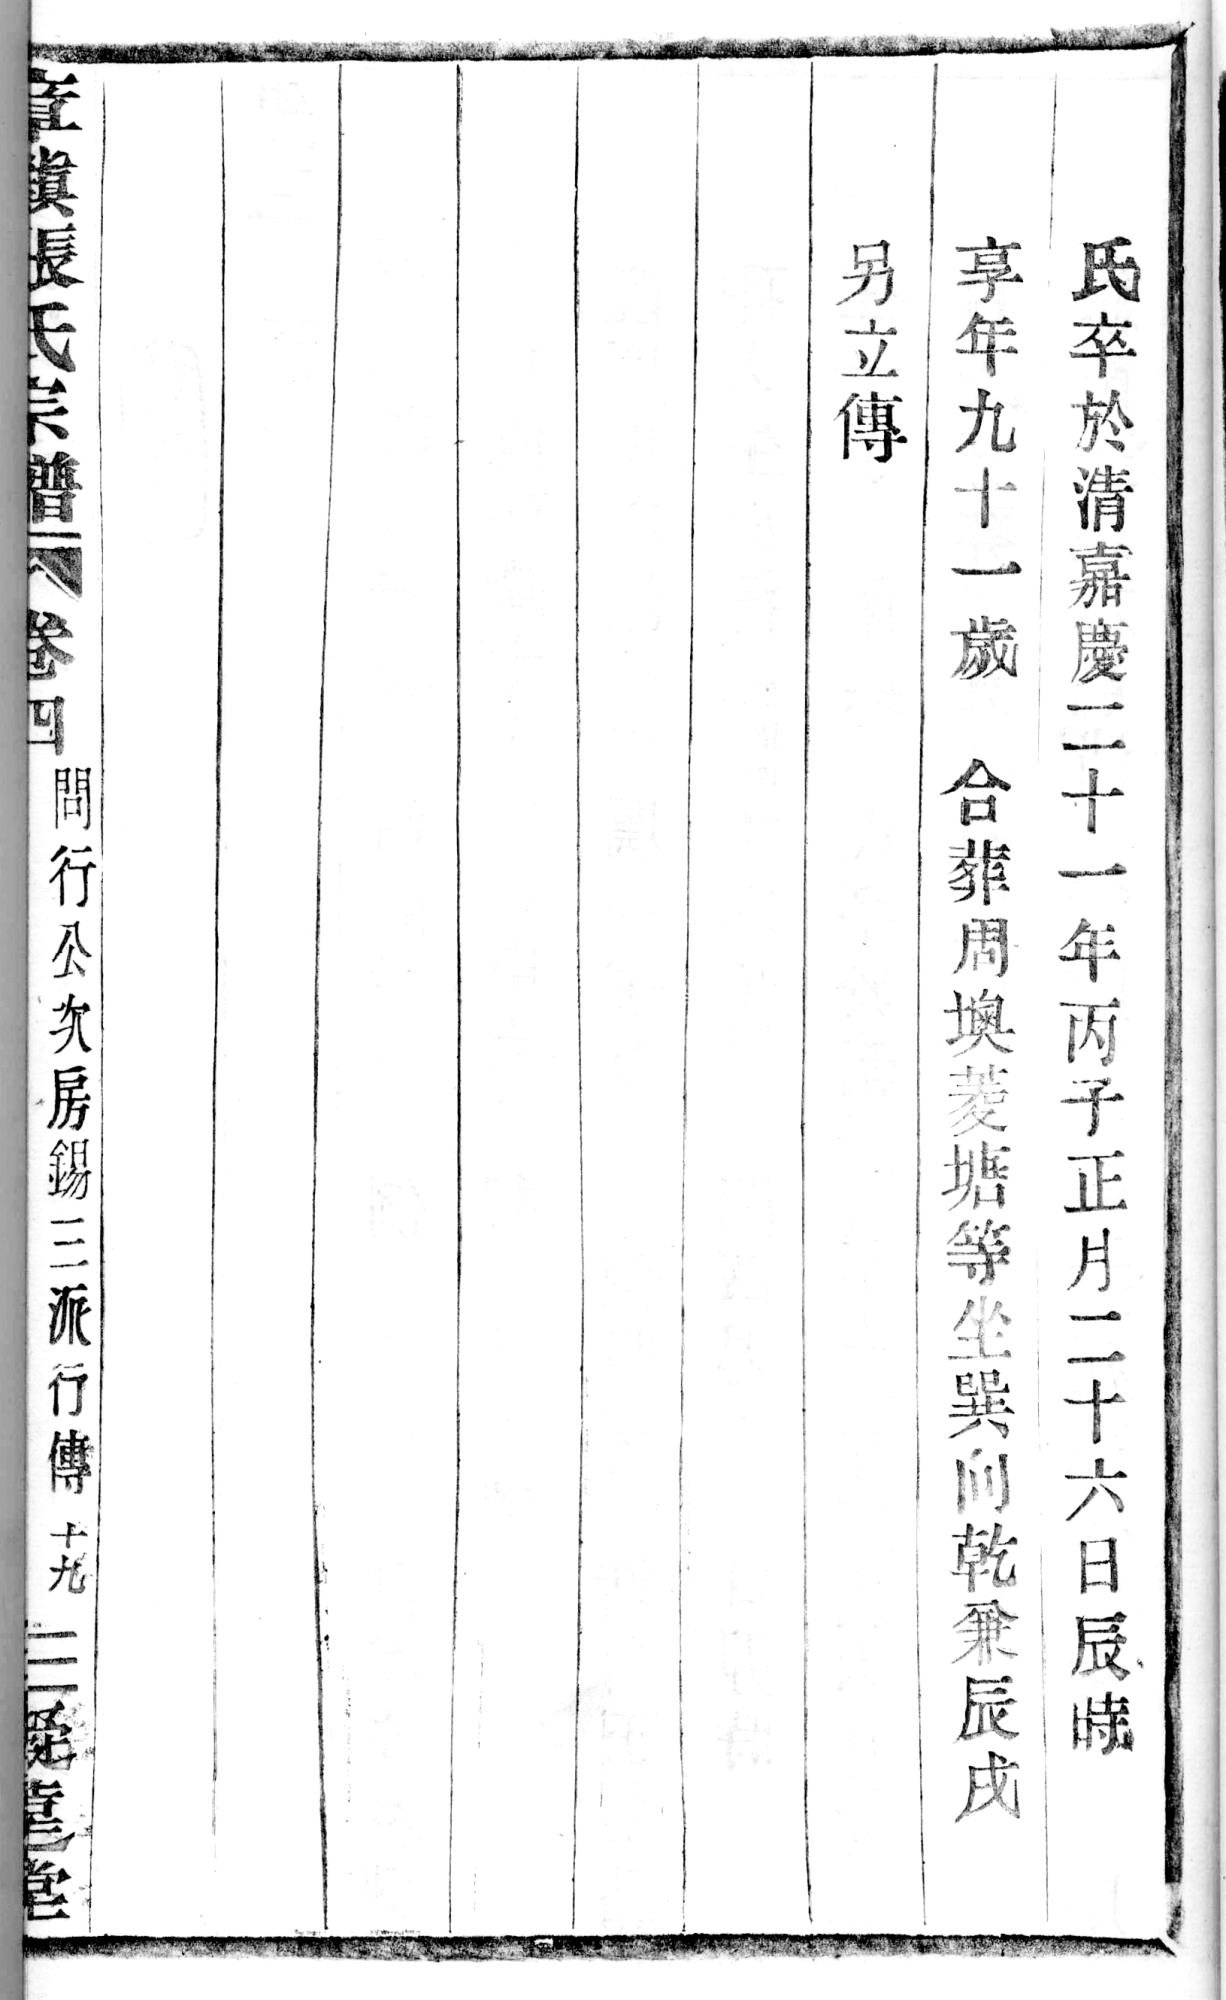 氏卒於清嘉慶二十一年丙子正月二十六日辰時
享年九十一歲　合葬周墺菱塘等坐巽向乾兼辰戌
另立傳
章鎮張氏宗譜 卷四 問行公次房錫三派行傳 十九 三 堂